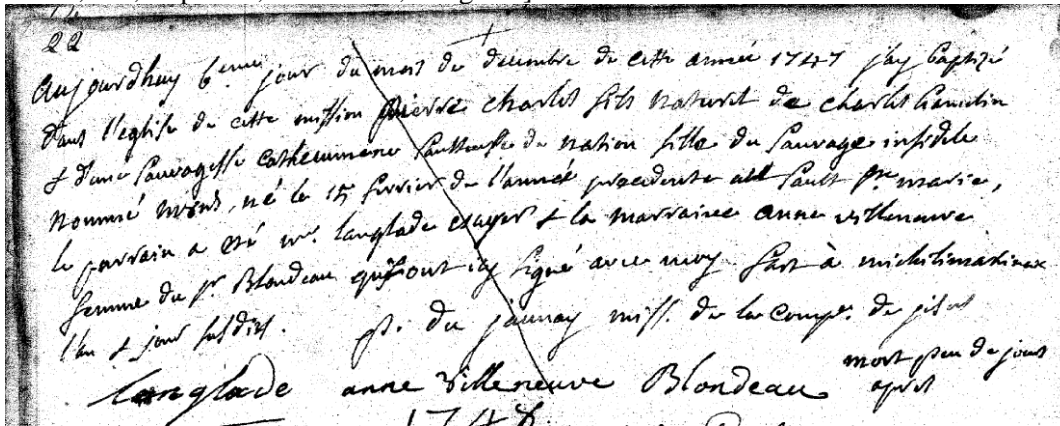 22
aujourdhuy 6.eme jour du mois de decembre de cette année 1747 jay baptizé
dans l'eglise de cette mission pierre charles fils naturel de charles hamelin
& d'une sauvagesse cathecumene sauteuse de nation fille du sauvage infidele
nommé né le 15 fevrier de l'année precedente au Sault Ste marie,
le parrain a eté mr. langlade cager & la marraine anne villeneuve
femme du sr Blondeau qui ont icy signé avec moy fait à michilimakinac
l'an & jour susdits. p. du jaunay miss. de la comp. de jesus
langlade anne Villeneuve Blondeau mort peu de jours
après